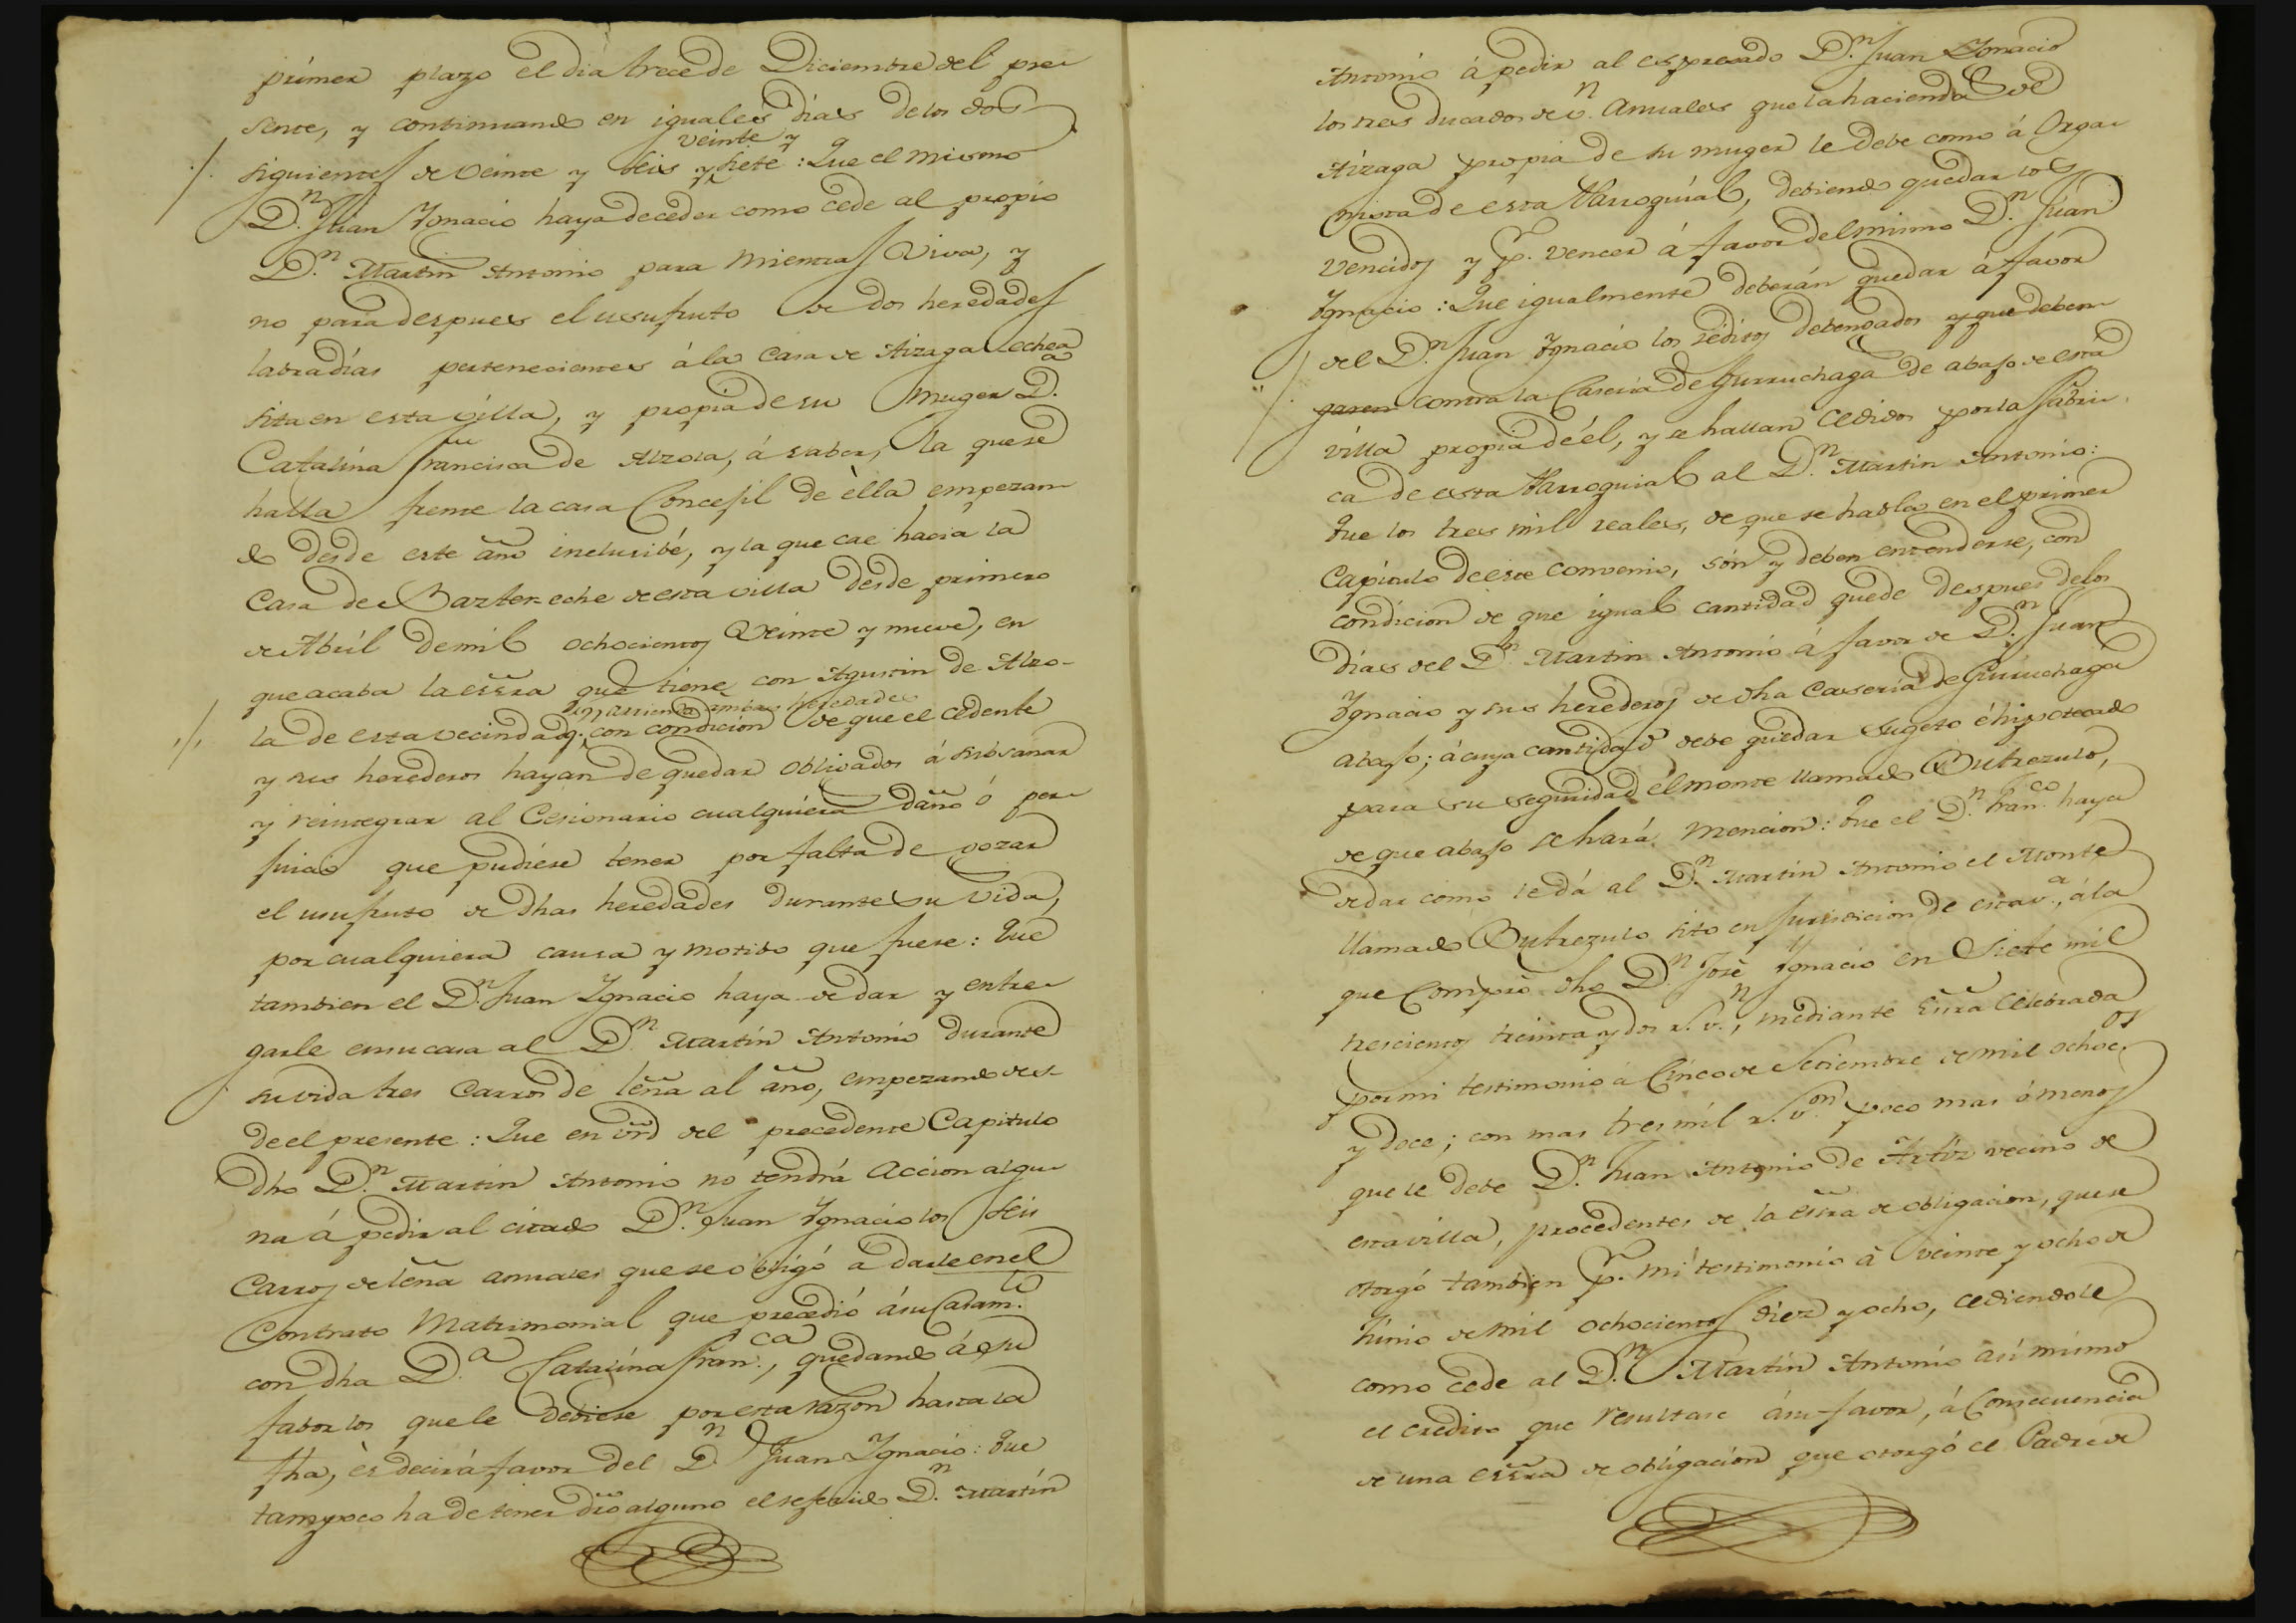 primer plazo el dia trece de Diciembre del pre-
sente, y continuando en iguales dias de los dos
siguientes de veinte y seis y veinte y siete: Que el mismo
D.n Juan Ygnacio haya de ceder como cede al propio
D.n Martin Antonio para mientras viva, y
no para despues el usufruto de dos heredades
labradías pertenecientes á la Casa de Aizaga echea
sita en esta villa, y propia de su Muger D.a
Catalina Francisca de Alzola, á saber, la que se
halla frente la casa Concejil de èlla empezan-
do desde este año inclusibé, y la que cae hacia la
Casa de Bazterreche de esta villa desde primero
de Abril de mil ochocientos veinte y nueve, en
que acaba la essra que tiene con Agustin de Alzo-
la de esta vecindad, en arriendo ambas heredades
q. con condicion de que el cedente
y sus herederos hayan de quedar obligados á subsanar
y reintegrar al Cesionario cualquiera daño ó per-
juicio que pudiese tener por falta de gozar
el usufruto de dhas heredades durante su Vida,
por cualquiera causa y motibo que fuese: Que
tambien el D.n Juan Ygnacio haya de dar y entre-
garle en su casa al D.n Martín Antonio durante
su vida tres Carros de leña al año, empezando des-
de el presente: Que en vrd del precedente Capitulo
dho D.n Martin Antonio no tendrá accion algu-
na á pedir al citado D.n Juan Ygnacio los seis
Carros de leña anuales que se obligó á darle en el
Contrato Matrimonial que precedió á su Casam.to
con dha D.a Catalina Fran.ca, quedando á su
fabor los que le debiese por esta razon hasta la
fha, ès decir á favor del D.n Juan Ygnacio: Que
tampoco ha de tener dro alguno el referido D.n Martín
Antonio á pedir al espresado D.n Juan Ygnacio
los tres ducados de v.n Anuales que la hacienda de
Aizaga propia de su muger le debe como á Orga-
nista de esta Parroquial, debiendo quedar los
Vencidos y p.r vencer á favor del mismo D.n Juan
Ygnacio: Que igualmente deberán quedar á favor
del D.n Juan Ygnacio los réditos debengados y que deben-
garen contra la Caseria de Gurruchaga de abajo de esta
villa propia de él, y se hallan cedidos por la Fabri-
ca de esta Parroquial al D.n Martin Antonio:
Que los tres mil reales, de que se habla en el primer
Capitulo de este convenio, són y deben entenderse, con
condicion de que igual cantidad quede despues de los
dias del D.n Martin Antonio á favor de D.n Juan
Ygnacio y sus herederos de dha Casería de Gurruchaga
abajo; á cuya cantidad debe quedar sugeto é hipotecado
para su seguridad el monte llamado Butrezulo,
de que abajo se hará mencion: Que el D.n Fran.co haya
de dar como le dá al D.n Martin Antonio el Monte
llamado Butrezulo sito en Jurisdicion de esta v.a, á la
que Compró dho D.n José Ygnacio en Siete mil
trescientos treinta y dos r.s v.n, mediante Essra celebrada
por mi testimonio á Cinco de Setiembre de mil ochoc.os
y doce; con mas tres mil r.s v.on poco mas ó menos
que le debe D.n Juan Antonio de Artiz vecino de
esta villa, procedentes de la essra de obligacion, que se
otorgó tambien p.r mi testimonio á veinte y ocho de
Junio de mil ochocientos diez y ocho, cediendole
como cede al D.n Martín Antonio asi mismo
el credito que resultase á su favor, á Consecuencia
de una essra de obligación que otorgó el Padre de